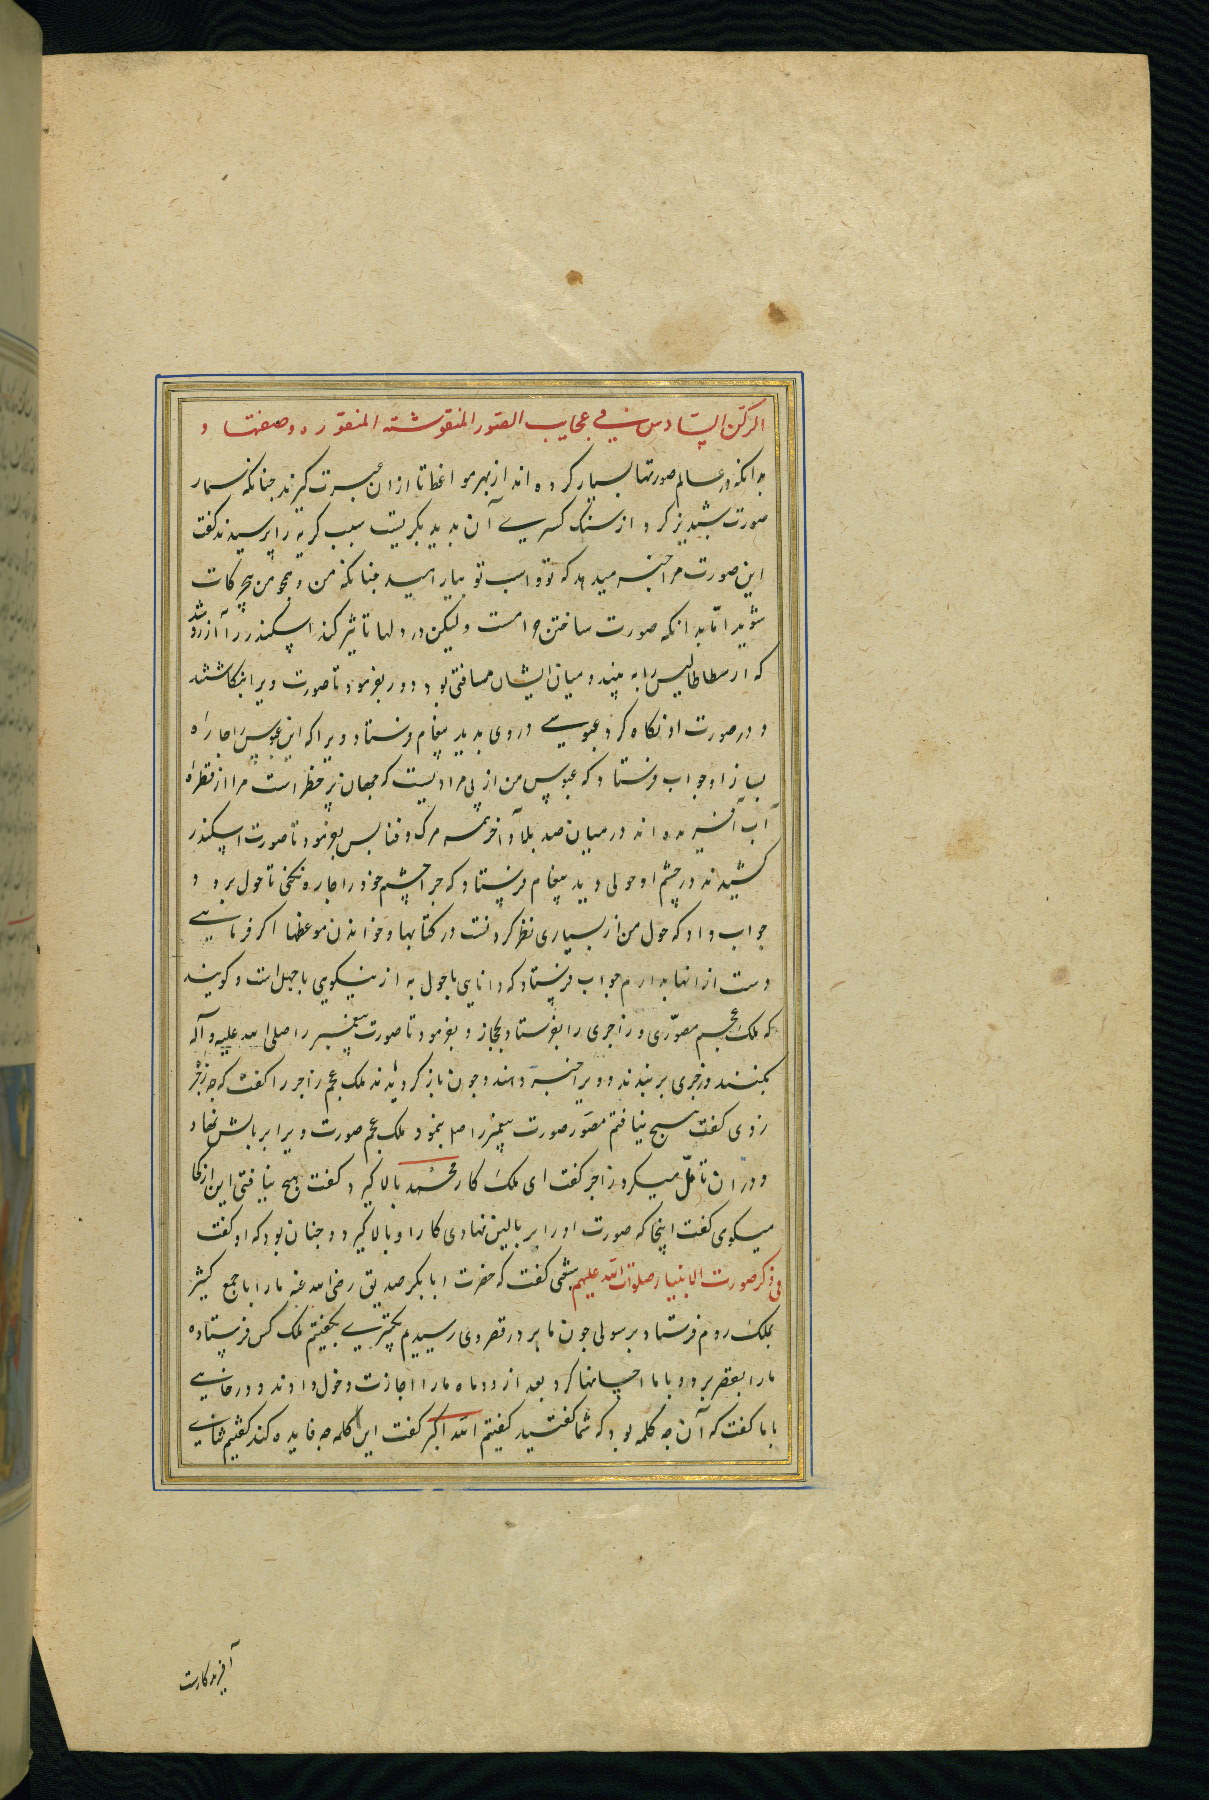 الرکن السّادس فی عجایب الصّور المنقوشته المنقوره وصفتها و
بدانکه در عالم صورتها بسیار کرده اند از بهر مواعظ تا ازان عبرت کیرند جنانکه سمار
صورت شبدیز کرد از سنک کسری آن بدید بکریست سبب کریه را پرسیدند کفت
این صورت مرا خبر میدهد که تو و اسب تو بیارامید جنانکه من و همجو من بیحرکات
شوید امّا بدانکه صورت ساختن حرامست ولیکن در دلها تاثیر کند اسکندر را آرزو شد
که ارسطاطالیس را به بیند و میان ایشان مسافتی بود دور بفرمود تا صورت ویرا بنکاشتند
و در صورت او نکاه کرد عبوسی در وی بدید پیغام فرستاد ویرا که این عبوس را جاره
بساز او جواب فرستاد که عبوس من از بی مرادیست که جهان پر خطر است مرا از قطره
آب آفریده اند در میان صد بلا و آخر همه مرک و فنا بس بفرمود تا صورت اسکندر
کشیدند در چشم او حولی دید پیغام فرستاد که جرا چشم خود را جاره نکنی تا حول برود
جواب داد که حول من از بسیاری نظر کردنست در کتابها و خواندن موعظها اکر فرمایی
دست از انها بدارم جواب فرستاد که دانایی با حول به از نیکویی با جهل است و کویند
که ملک عجم مصوّری و زاجری را بفرستاد بحجاز و بفرمود تا صورت پیغمبر را صلی الله علیه و آله
بکنند و زجری بر بندند و ویرا خبر دهند و جون باز کردیدند ملک عجم زاجر را کفت که جه زجر
زدی کفت هیج نیافتم مصوّر صورت پیغمبر را صلعم بنمود ملک عجم صورت ویرا بر بالش نهاد
و دران تامّل میکرد زاجر کفت ای ملک کار محمّد بالا کیرد کفت هیج نیافتی این از کجا
میکوی کفت اینجا که صورت او را بر بالین نهادی کار او بالا کیرد و جنان بود که او کفت
فی ذکر صورت الانبیاء صلوات الله علیهم شعبی کفت که حضرت ابا بکر صدیق رضی الله عنه ما را با جمع کثیر
بملک روم فرستاد برسولی جون ما بر در قصر وی رسیدیم تکبیری بکفتیم ملک کس فرستاده
ما را بقصر برد و با ما احسانها کرد بعد از دو ماه ما را اجازت دخول دادند و در خانه
با ما کفت که آن جه کلمه بود که شما کفتید کفتیم الله اکبر کفت این کلمه جه فایده کند کفتیم ثنای
آفریدکارست